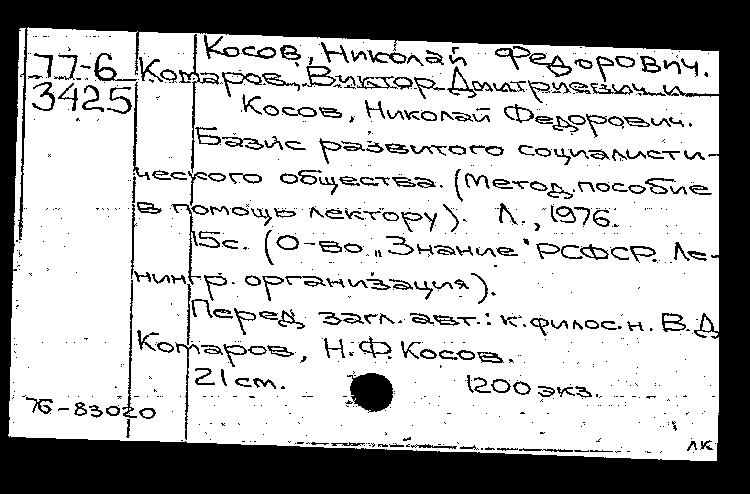 Косов, Николай Федорович.
77-6
Комаров, Виктор Дмитриевич и
3425
Косов, Николай Федорович.
Базис развитого социалисти-
ческого общества. (Метод. пособие
в помощь лектору). Л., 1976.
15с. (О-во „Знание" РСФСР. Ле-
нингр. организация).
Перед загл. авт.: к.филос.н. В.Д.
Комаров, Н.Ф. Косов.
21 см. 1200 экз.
76-83020
ЛК